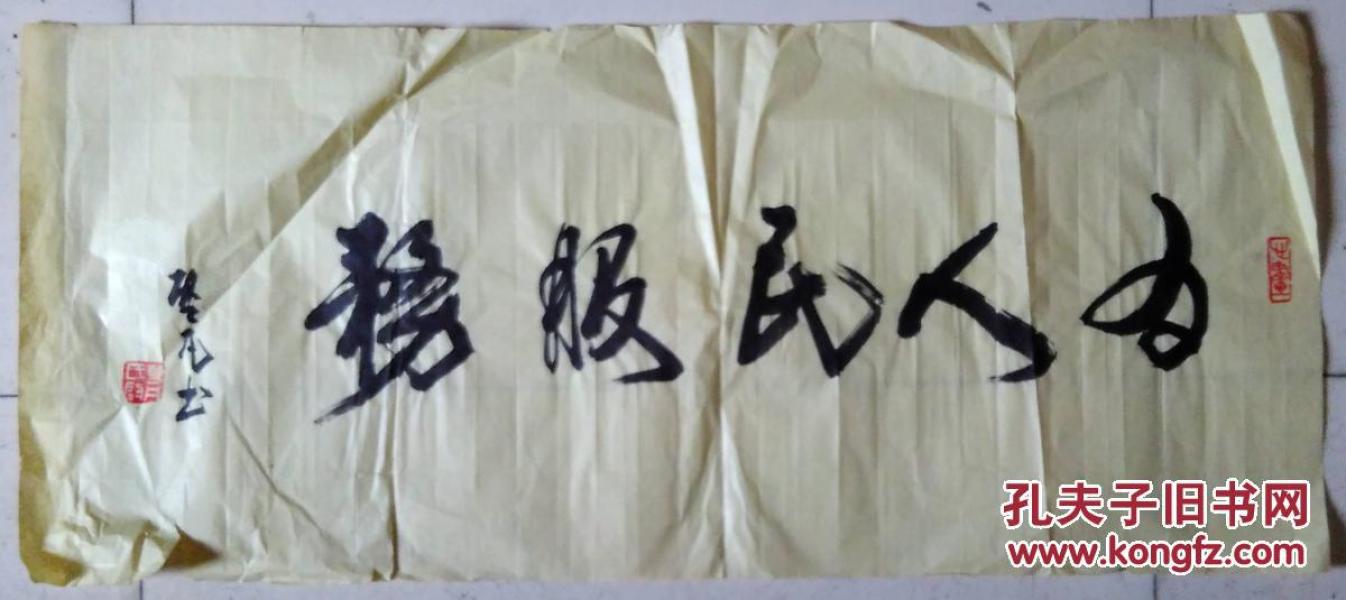 为人民服務
书
孔夫子旧书网
www.kongfz.com